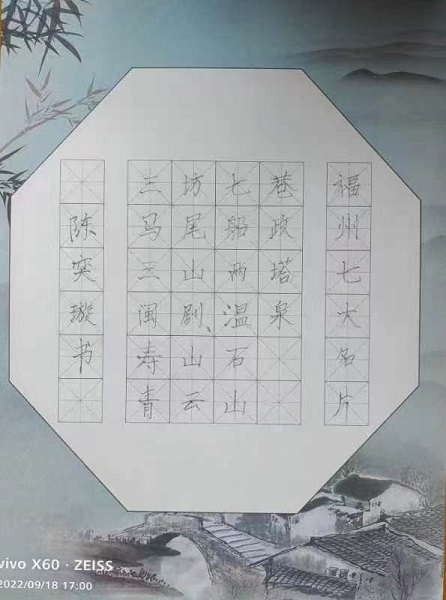 福州七大名片
三坊七巷
马尾船政
三山两塔
闽剧、温泉
寿山石
青云山
陈奕璇书
vivo X60 · ZEISS
2022/09/18 17:00